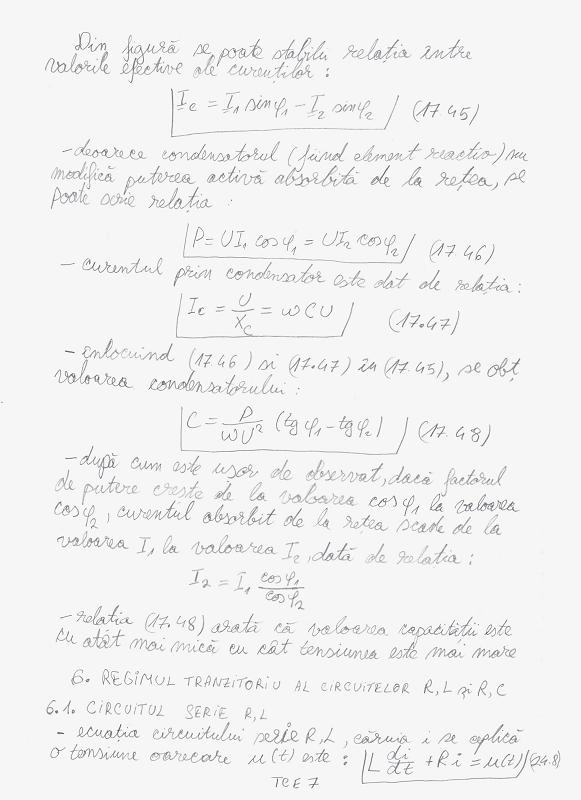 Din figură se poate stabili relația între
valorile efective ale curenților :
I_c = I_1 sinφ_1 - I_2 sinφ_2 (17.45)
- deoarece condensatorul (fiind element reactiv) nu
modifică puterea activă absorbită de la rețea, se
poate scrie relația :
P = UI_1 cosφ_1 = UI_2 cosφ_2 (17.46)
- curentul prin condensator este dat de relația :
I_c = U/X_C = ωCU (17.47)
- înlocuind (17.46) si (17.47) în (17.45), se obț
valoarea condensatorului :
C = P/ωU² (tgφ_1 - tgφ_2) (17.48)
- după cum este ușor de observat, dacă factorul
de putere crește de la valoarea cosφ_1 la valoarea
cosφ_2, curentul absorbit de la rețea scade de la
valoarea I_1 la valoarea I_2, dată de relația :
I_2 = I_1 cosφ_1/cosφ_2
- relația (17.48) arată că valoarea capacității este
cu atât mai mică cu cât tensiunea este mai mare
6. REGIMUL TRANZITORIU AL CIRCUITELOR R,L și R,C
6.1. CIRCUITUL SERIE R,L
- ecuația circuitului serie R,L, căruia i se aplică
o tensiune oarecare u(t) este : L di/dt + Ri = u(t) (24.8)
TCE 7